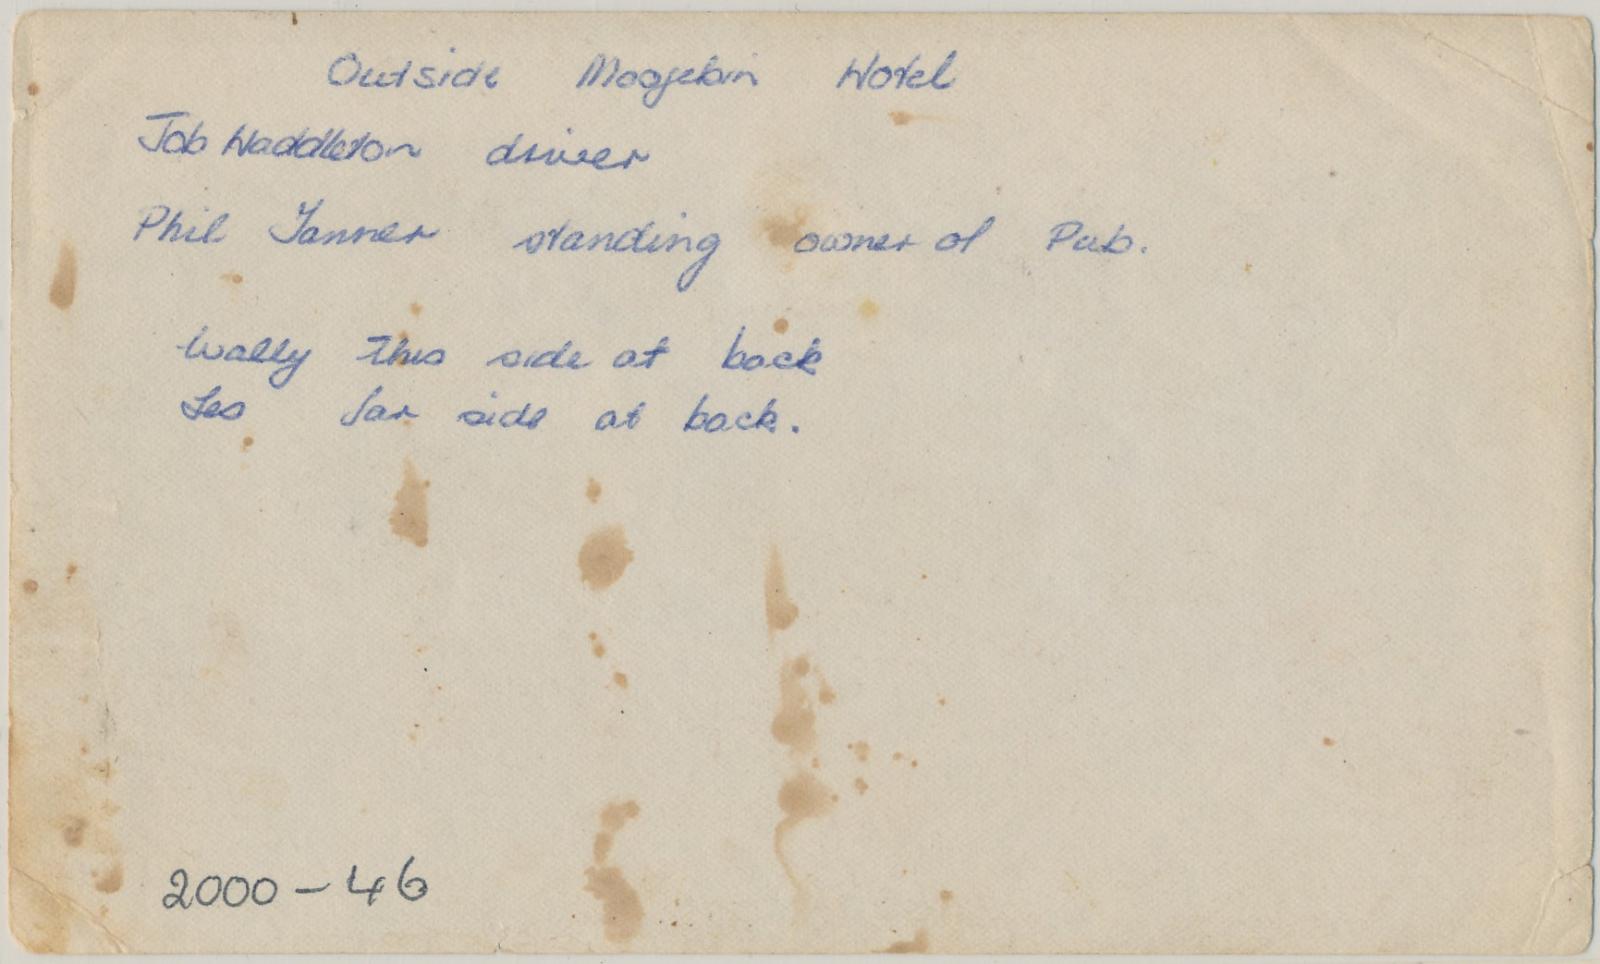 Outside Moojebin Hotel
Job Haddleton driver
Phil Tanner standing owner of Pub.
Wally this side at back
Les far side at back.
2000-46